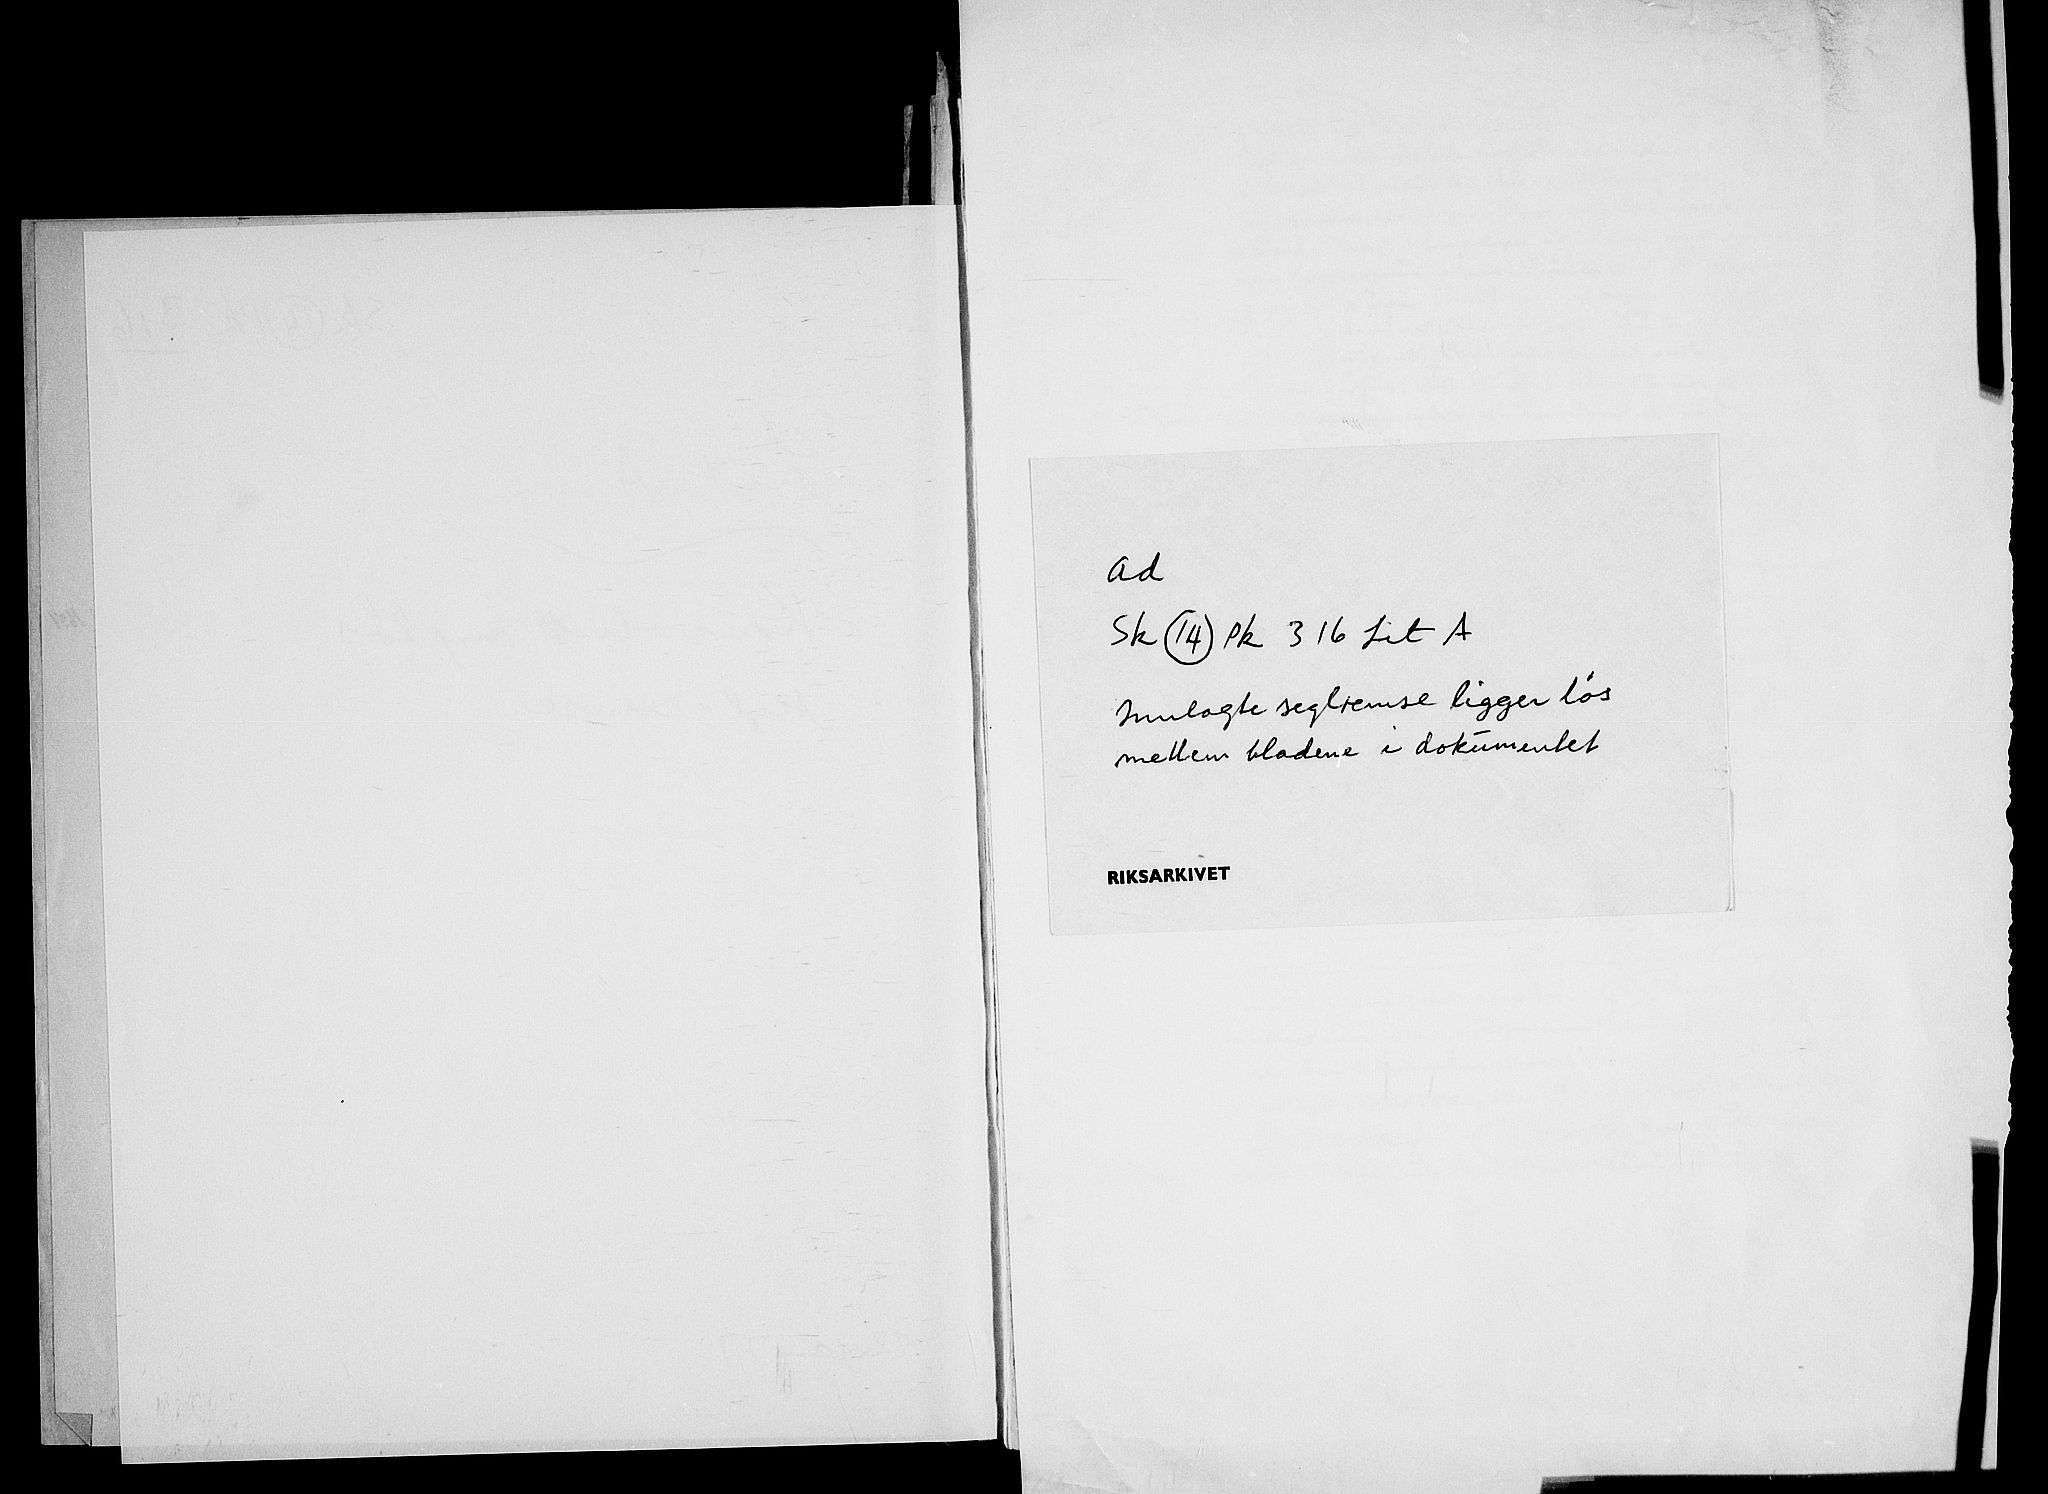 ad
Sk 14 Pk 316 Lit A
Innlagte seglremse ligger lös
mellem bladene i dokumentet
RIKSARKIVET